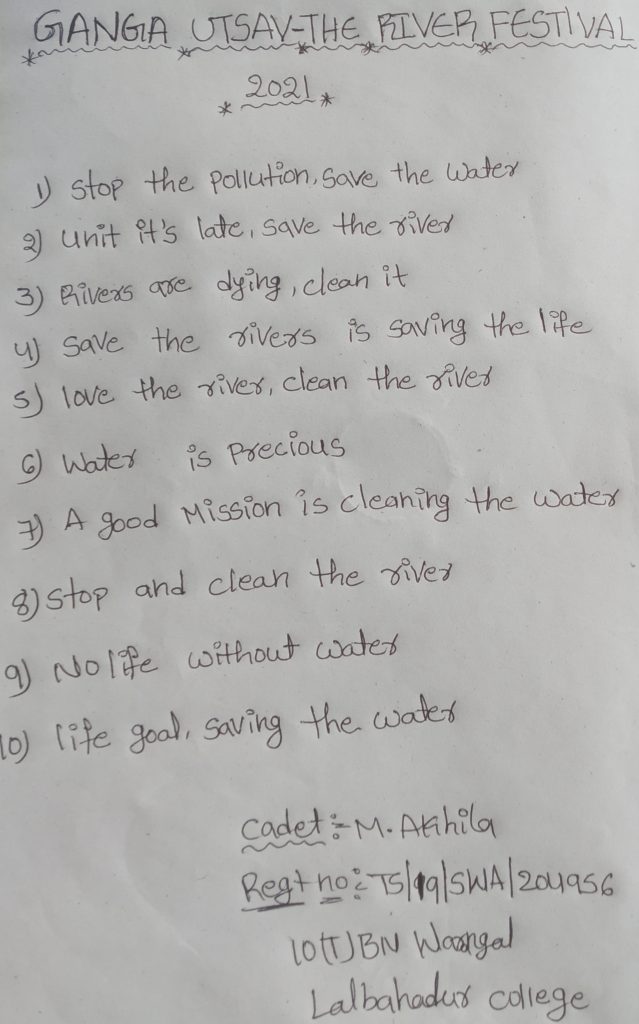 GANGA UTSAV-THE RIVER FESTIVAL
* 2021 *
1) Stop the pollution, save the water
2) unit it's late, save the river
3) Rivers are dying, clean it
4) save the rivers is saving the life
5) love the river, clean the river
6) Water is Precious
7) A good Mission is cleaning the water
8) Stop and clean the river
9) No life without water
10) life goal, saving the water
Cadet :- M. Akhila
Regt no : TS/19/SWA/204956
10(T) BN Warangal
Lalbahadur college